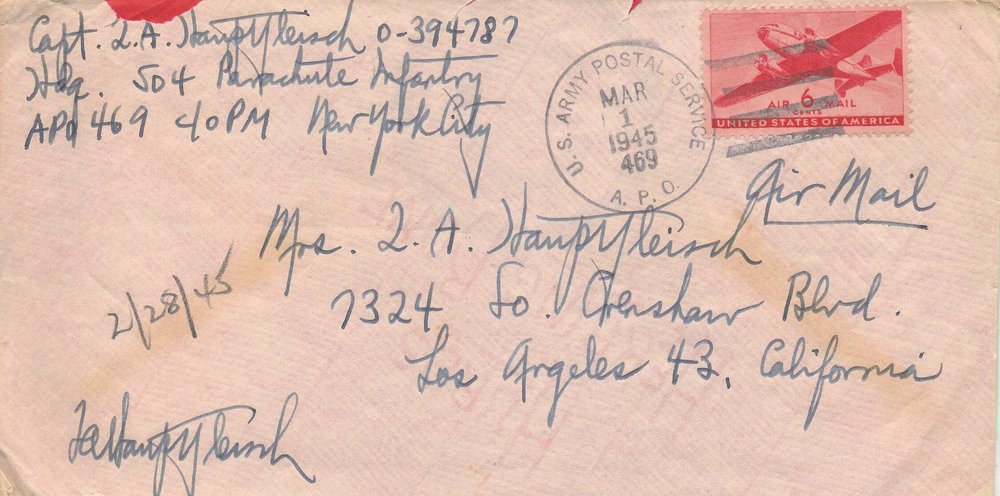 Capt. L. A. Hauptfleisch O-394787
Hdq. 504 Parachute Infantry
APO 469 c/o PM New York City
U. S. ARMY POSTAL SERVICE
MAR
1
1945
469
A. P. O.
AIR 6 MAIL
CENTS
UNITED STATES OF AMERICA
Air Mail
Mrs. L. A. Hauptfleisch
7324 So. Crenshaw Blvd.
Los Angeles 43, California
2/28/45
Hauptfleisch